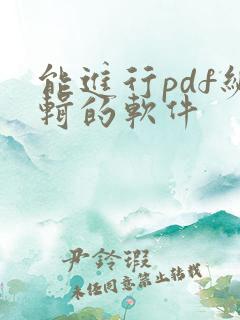 能進行pdf編
輯的軟件
尹鈴瑕
未經同意禁止轉載